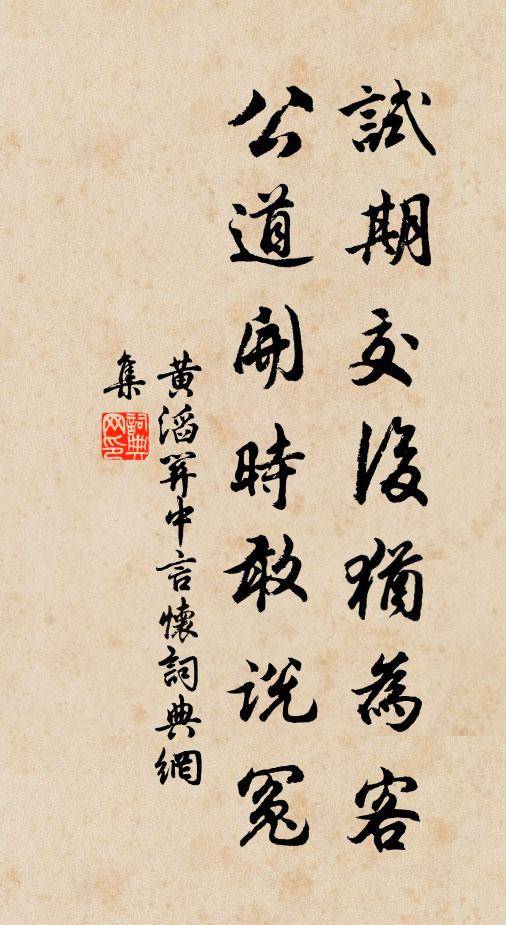 試期交後猶為客
公道開時敢說冤
黃滔關中言懷詞典網
集
詞典
网印